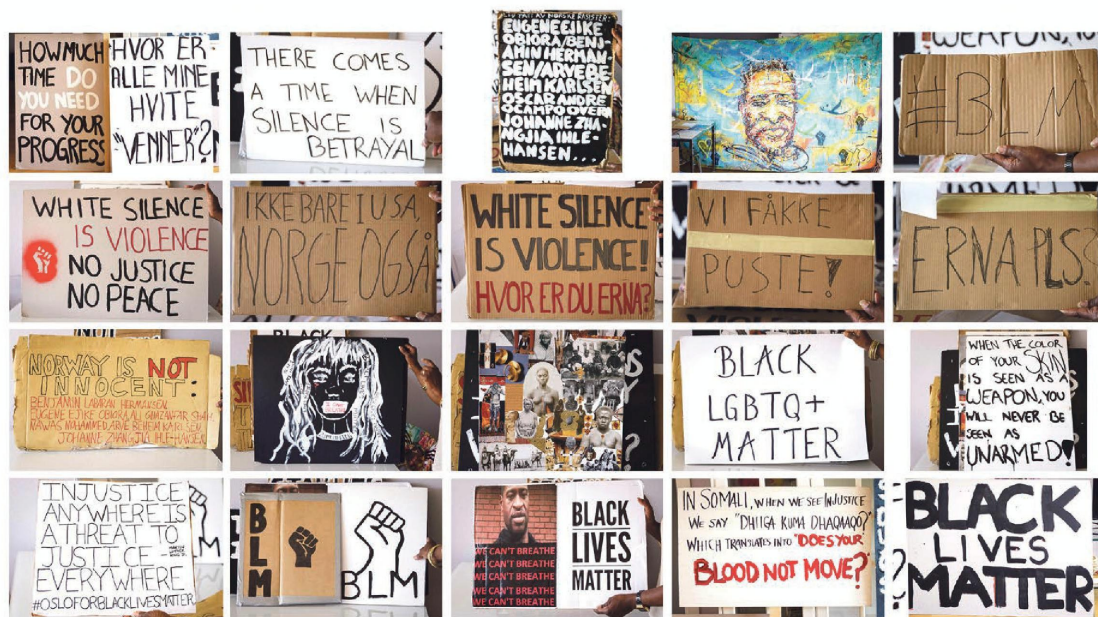 HOW MUCH
TIME DO
YOU NEED
FOR YOUR
PROGRESS
HVOR ER
ALLE MINE
HVITE
"VENNER"?
THERE COMES
A TIME WHEN
SILENCE IS
BETRAYAL
AV NORSKE RASISTER
EUGENE EJIKE
OBIORA/BENJ-
AMIN HERMAN
SEN/ARVE BE
HEIM KARLSEN
OSCAR ANDRE
OCAMPO OVERN
JOHANNE ZHA-
NGJIA IHLE-
HANSEN...
WEAPON, YO
#BLM
WHITE SILENCE
IS VIOLENCE
NO JUSTICE
NO PEACE
IKKE BARE I USA,
NORGE OGSÅ
WHITE SILENCE
IS VIOLENCE!
HVOR ER DU, ERNA?
VI FÅKKE
PUSTE!
UNARMED
ERNA PLS?
NORWAY IS NOT
INNOCENT:
BENJAMIN LABARAN HERMANSEN,
EUGENE EJIKE OBIORA, ALI GHAZANFAR SHAH
NAWAS MOHAMMED, ARVE BEHEIM KARLSEN,
JOHANNE ZHANGJIA IHLE-HANSEN
BLACK
BLACK
LGBTQ+
MATTER
WHEN THE COLOR
OF YOUR SKIN
IS SEEN AS A
WEAPON, YOU
WILL NEVER BE
SEEN AS
UNARMED!
INJUSTICE
ANYWHERE IS
A THREAT TO
JUSTICE -
EVERYWHERE
#OSLOFORBLACKLIVESMATTER
LM
BLM
BLM
WE CAN'T BREATHE
WE CAN'T BREATHE
WE CAN'T BREATHE
WE CAN'T BREATHE
WE CAN'T BREATHE
BLACK
LIVES
MATTER
IN SOMALI, WHEN WE SEE INJUSTICE
WE SAY "DHIIGA KUMA DHAQAAQO?"
WHICH TRANSLATES INTO "DOES YOUR
BLOOD NOT MOVE?"
BLACK
LIVES
MATTER